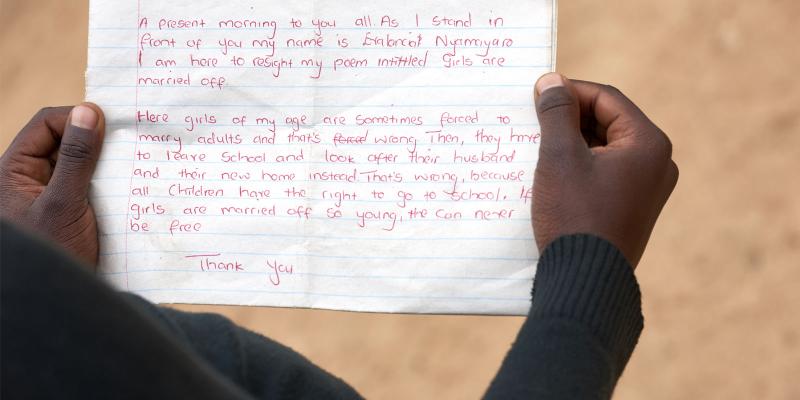 A present morning to you all. As I stand in
front of you my name is Nyamayaro
I am here to resight my poem intittled girls are
married off.
Here girls of my age are sometimes forced to
marry adults and that's forced wrong Then, they have
to leave school and look after their husband
and their new home instead. That's wrong, because
all Children have the right to go to school. If
girls are married off so young, the can never
be free
Thank you